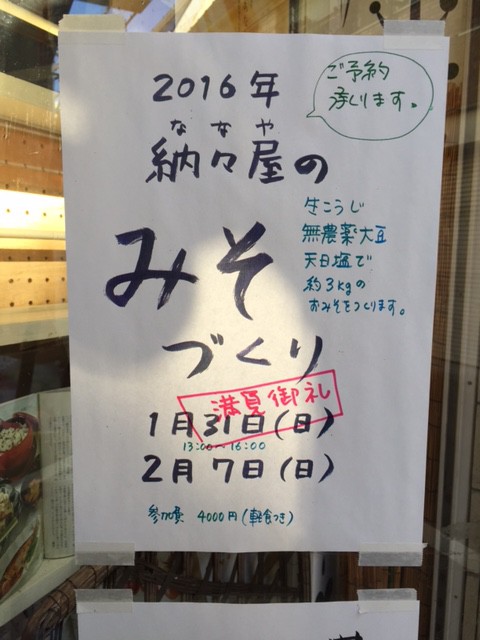 2016年
ご予約
承ります。
ななや
納々屋の
みそ
づくり
生こうじ
無農薬大豆
天日塩で
約3kgの
おみそをつくります。
満員御礼
1月31日(日)
13:00~16:00
2月7日(日)
参加費 4000円(軽食つき)